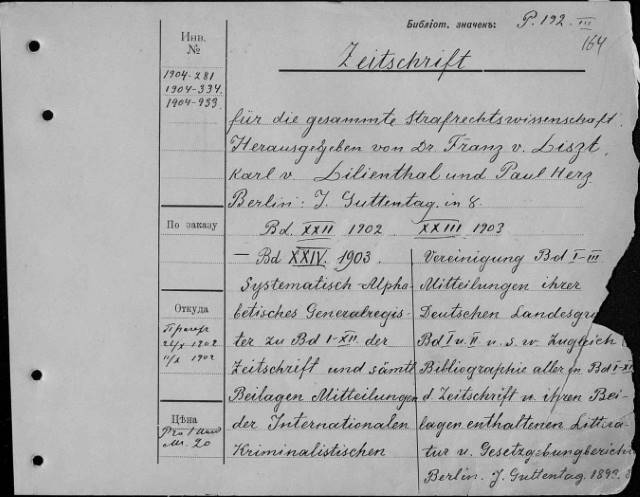 Библіот. значекъ: P. 192 III
164
Инв.
№
1904-281
1904-334
1904-933
Zeitschrift
für die gesammte Strafrechtswissenschaft.
Herausgegeben von Dr. Franz v. Liszt,
Karl v Lilienthal und Paul Herz
Berlin: J. Guttentag. in 8.
По заказу
Bd. XXII 1902 XXIII 1903
— Bd XXIV. 1903.
Systematisch-Alpha-
betisches Generalregis-
ter zu Bd I-XII der
Zeitschrift und sämtl
Beilagen Mitteilungen
der Internationalen
Kriminalistischen
Vereinigung Bd I-III
Mitteilungen ihrer
Deutschen Landesgru
Bd I u. II u. s. w. Zugleich
Bibliographie aller in Bd I-XI
d Zeitschrift u. ihren Bei-
lagen enthaltenen Littra-
tur u. Gesetzgebungberich
Berlin. J. Guttentag. 1899.
Откуда
1902
1902
Цѣна
Mr. 20